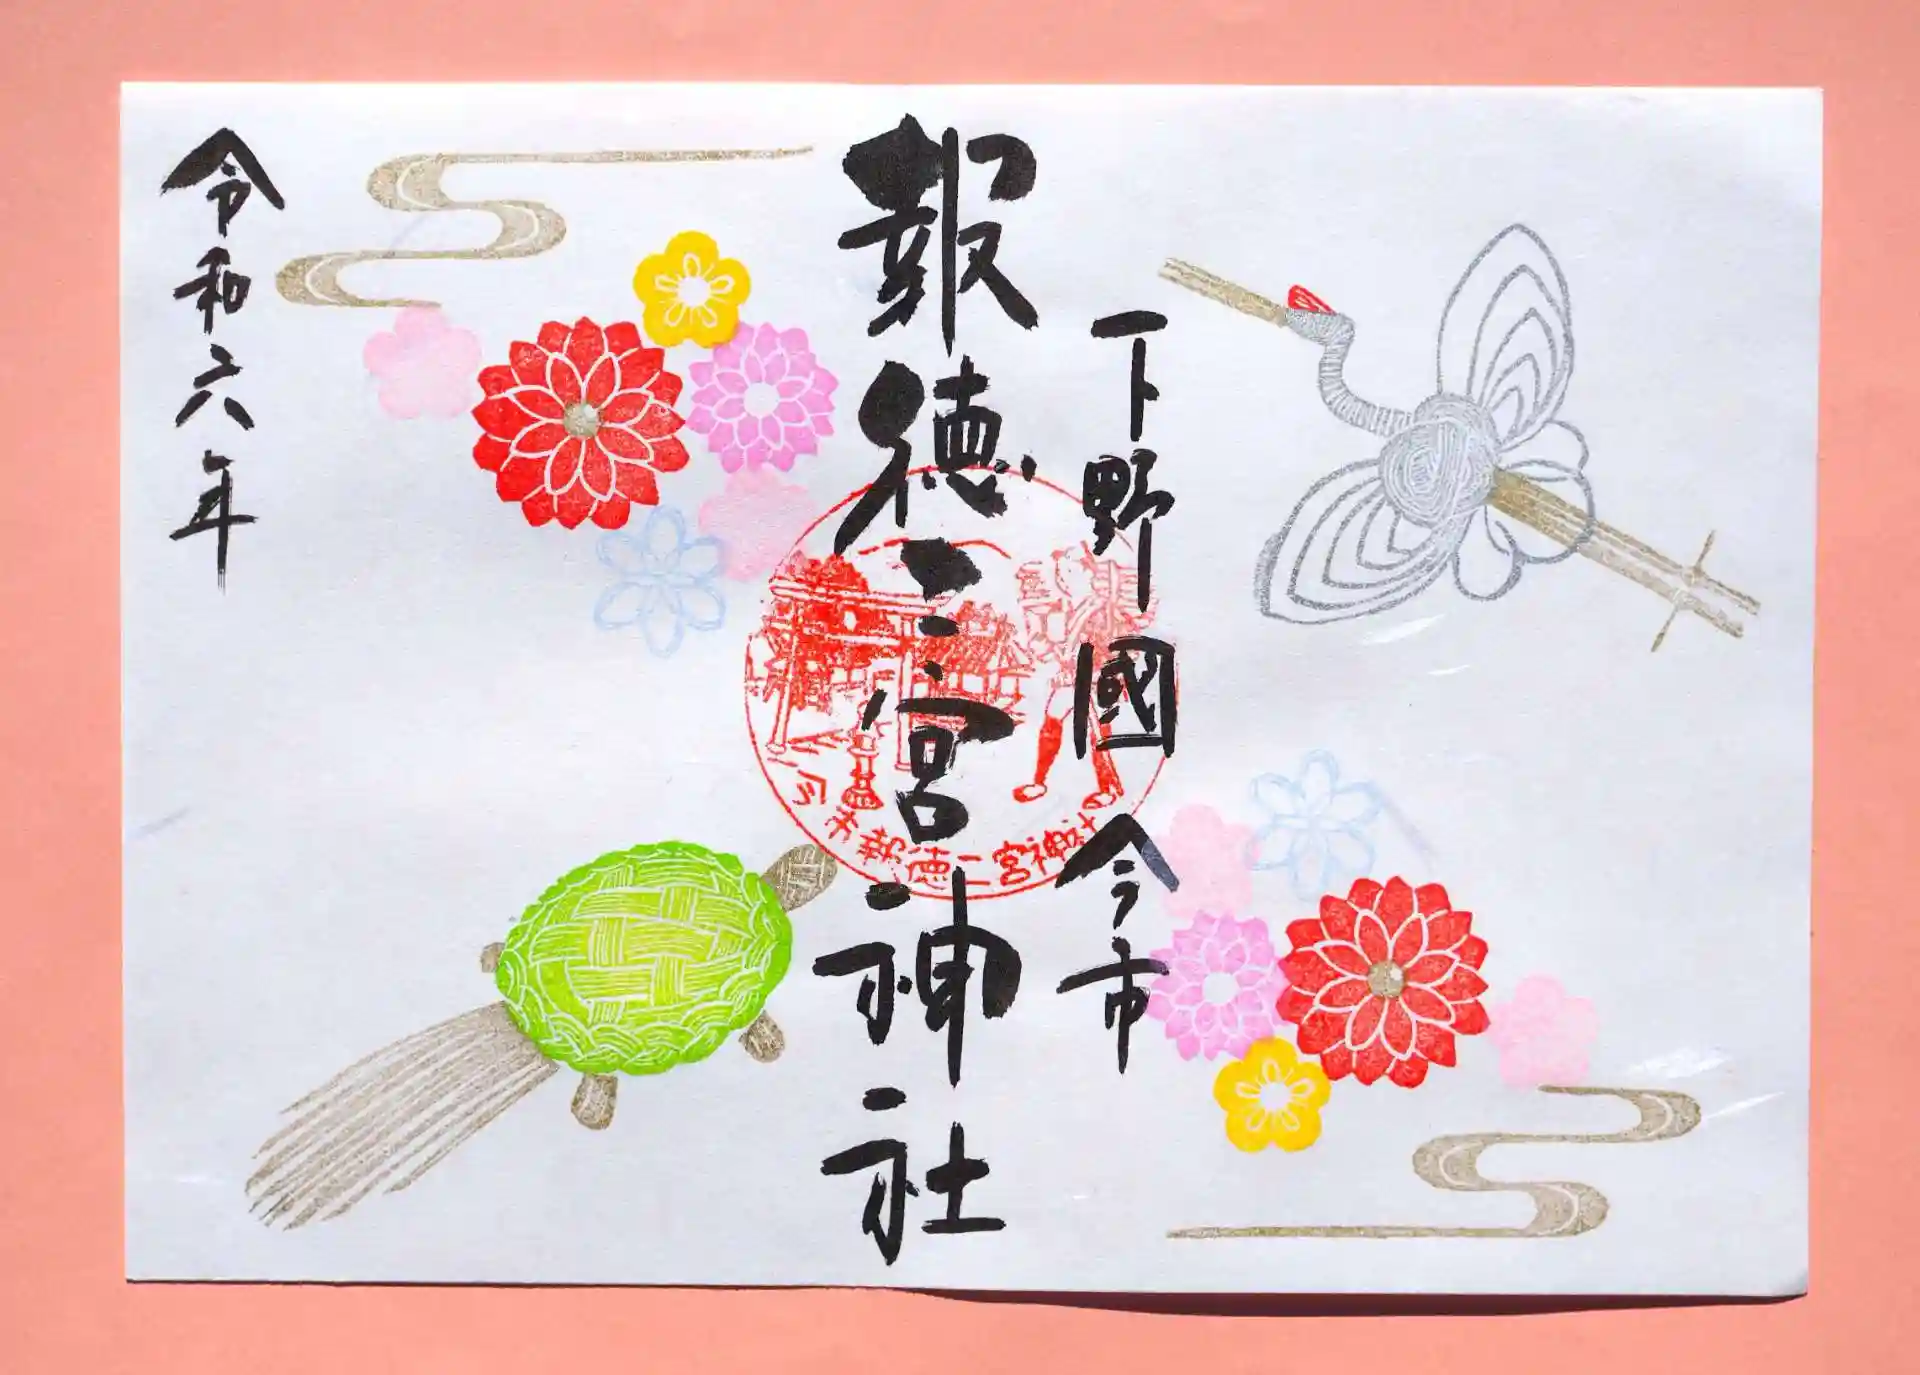 下野國今市
報徳二宮神社
令和六年
今市報徳二宮神社